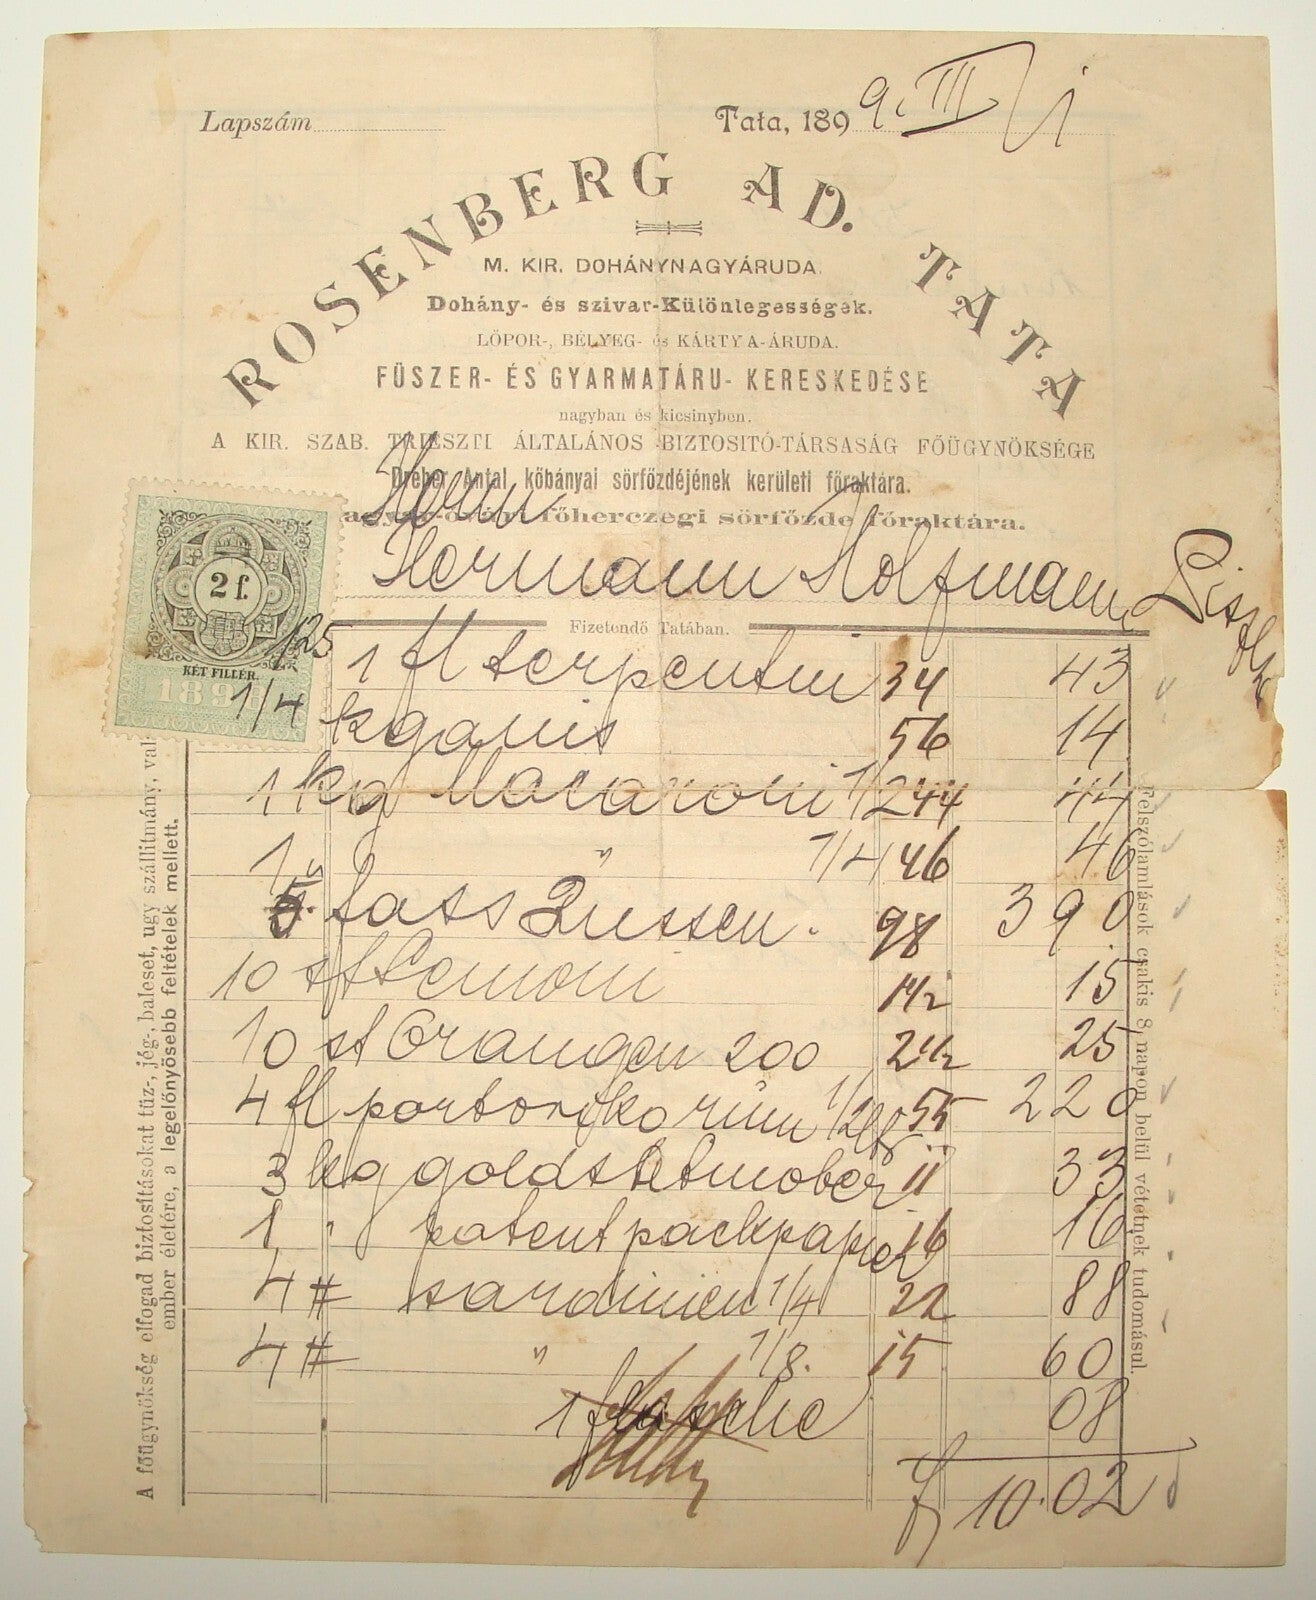 Lapszám
Tata, 1899. III / 1
ROSENBERG AD. TATA
M. KIR. DOHÁNYNAGYÁRUDA.
Dohány- és szivar-Különlegességek.
LŐPOR-, BÉLYEG- és KÁRTYA-ÁRUDA.
FÜSZER- ÉS GYARMATÁRU- KERESKEDÉSE
nagyban és kicsinyben.
A KIR. SZAB. TRIESZTI ÁLTALÁNOS BIZTOSITÓ-TÁRSASÁG FŐÜGYNÖKSÉGE
Dreher Antal kőbányai sörfőzdéjének kerületi főraktára.
főherczegi sörfőzde főraktára.
Herrn
Hermann Hoffmann
2 f.
KÉT FILLÉR.
189
Fizetendő Tatában.
1/25 1 fl terpentin 34 43
1/4 kg anis 56 14
1 kg Macaroni 1/2 44 44
1 " " 1/4 46 46
5 fass 98 390
10 st Lemoni 1 1/2 15
10 st Orangen 200 2 1/2 25
4 fl portoriko rum 1/2 55 220
3 kg 11 33
1 " patent packpapier 16 16
4 # sardinien 1/4 22 88
4 # " 1/8. 15 60
1 flasche 08
f 10.02
A főügynökség elfogad biztosításokat tüz-, jég-, baleset, ugy szállitmány, val-
ember életére, a legelőnyösebb feltételek mellett.
Felszólamlások csakis 8 napon belül vétetnek tudomásul.